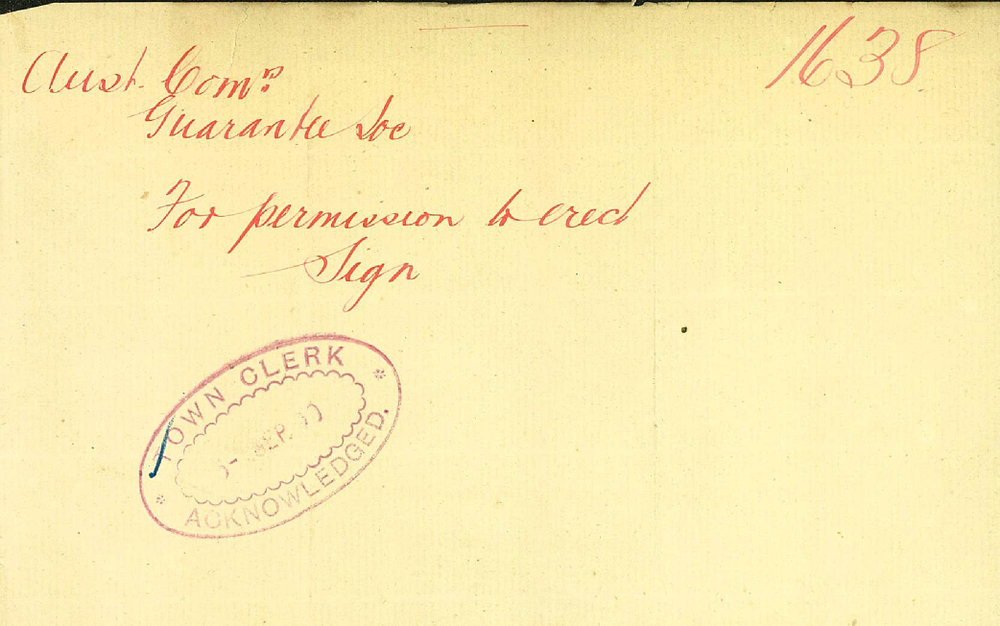 1638
Aust. Comn
Guarantee Soc
For permission to erect
Sign
TOWN CLERK
SEP.
ACKNOWLEDGED.